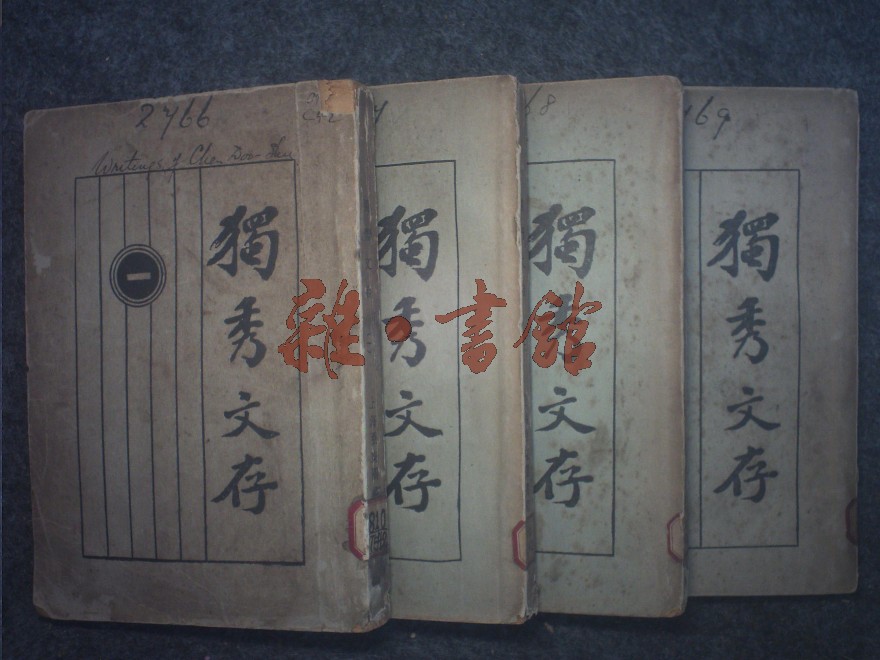 2766
Writings of Chen Doo Shiu
獨秀文存
一
獨秀文存
獨秀文存
68
獨秀文存
69
雜·書館
810